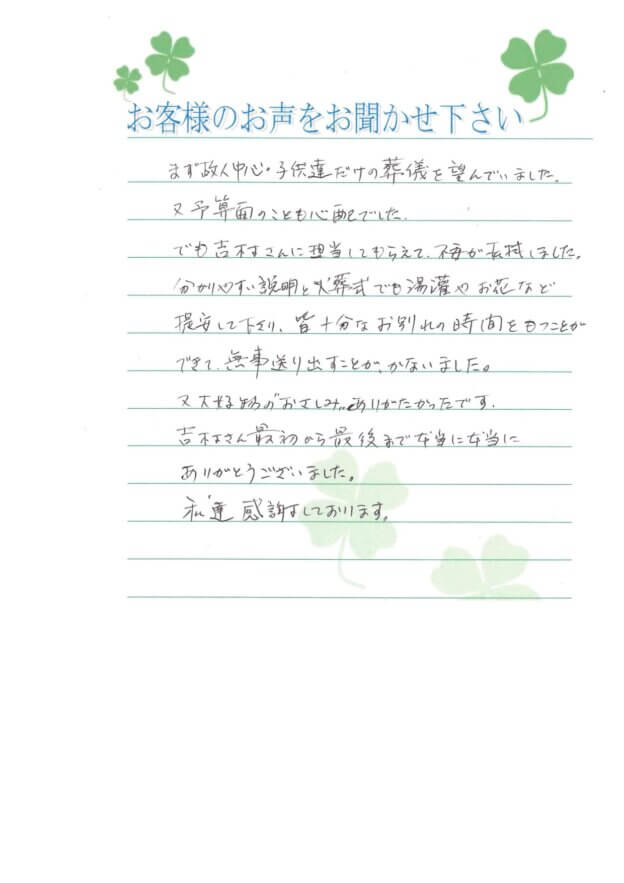 お客様のお声をお聞かせ下さい
まず故人中心・子供達だけの葬儀を望んでいました。
又予算面のことも心配でした。
でも吉村さんに担当してもらえて、不安が払拭しました。
分かりやすい説明と火葬式でも湯灌やお花など
提案して下さり、皆十分なお別れの時間をもつことが
できて、無事送り出すことが、かないました。
又大好物の"おさしみ"ありがたかったです。
吉村さん最初から最後まで本当に本当に
ありがとうございました。
私達感謝しております。